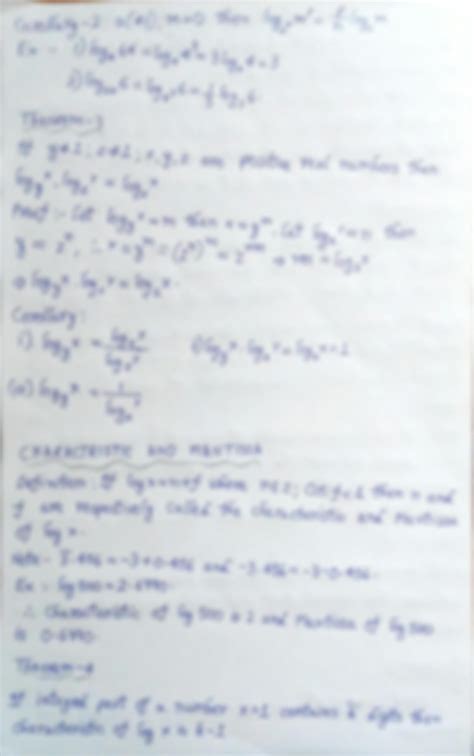 Corollary-2 n(≠0), m>0 then
Ex - i) log₄64 = log₄4³ = 3 log₄4 = 3
Theorem-3
If y≠1, z≠1, x, y, z are positive real numbers then
log_y x · log_z y = log_z x
Proof :- Let log_y x = m then x = y^m. Let log_z y = n then
y = z^n, ∴ x = y^m = (z^n)^m = z^nm ⇒ nm = log_z x
⇒ log_y x · log_z y = log_z x.
Corollary:
i) log_y x = log_z x / log_z y
log_y x = 1 / log_x y
CHARACTRISTIC AND MANTISSA
Definition: If log x = n + f where n ∈ Z, 0 ≤ f < 1 then n and
f are respectively called the characteristic and Mantissa
of log x.
Note - 3̅.456 = -3 + 0.456 and -3.456 = -3 - 0.456.
Ex : log 500 = 2.6990
∴ Characteristic of log 500 is 2 and Mantissa of log 500
is 0.6990.
Theorem-4
If integral part of a number x>1 contains k digits then
characteristic of log x is k-1